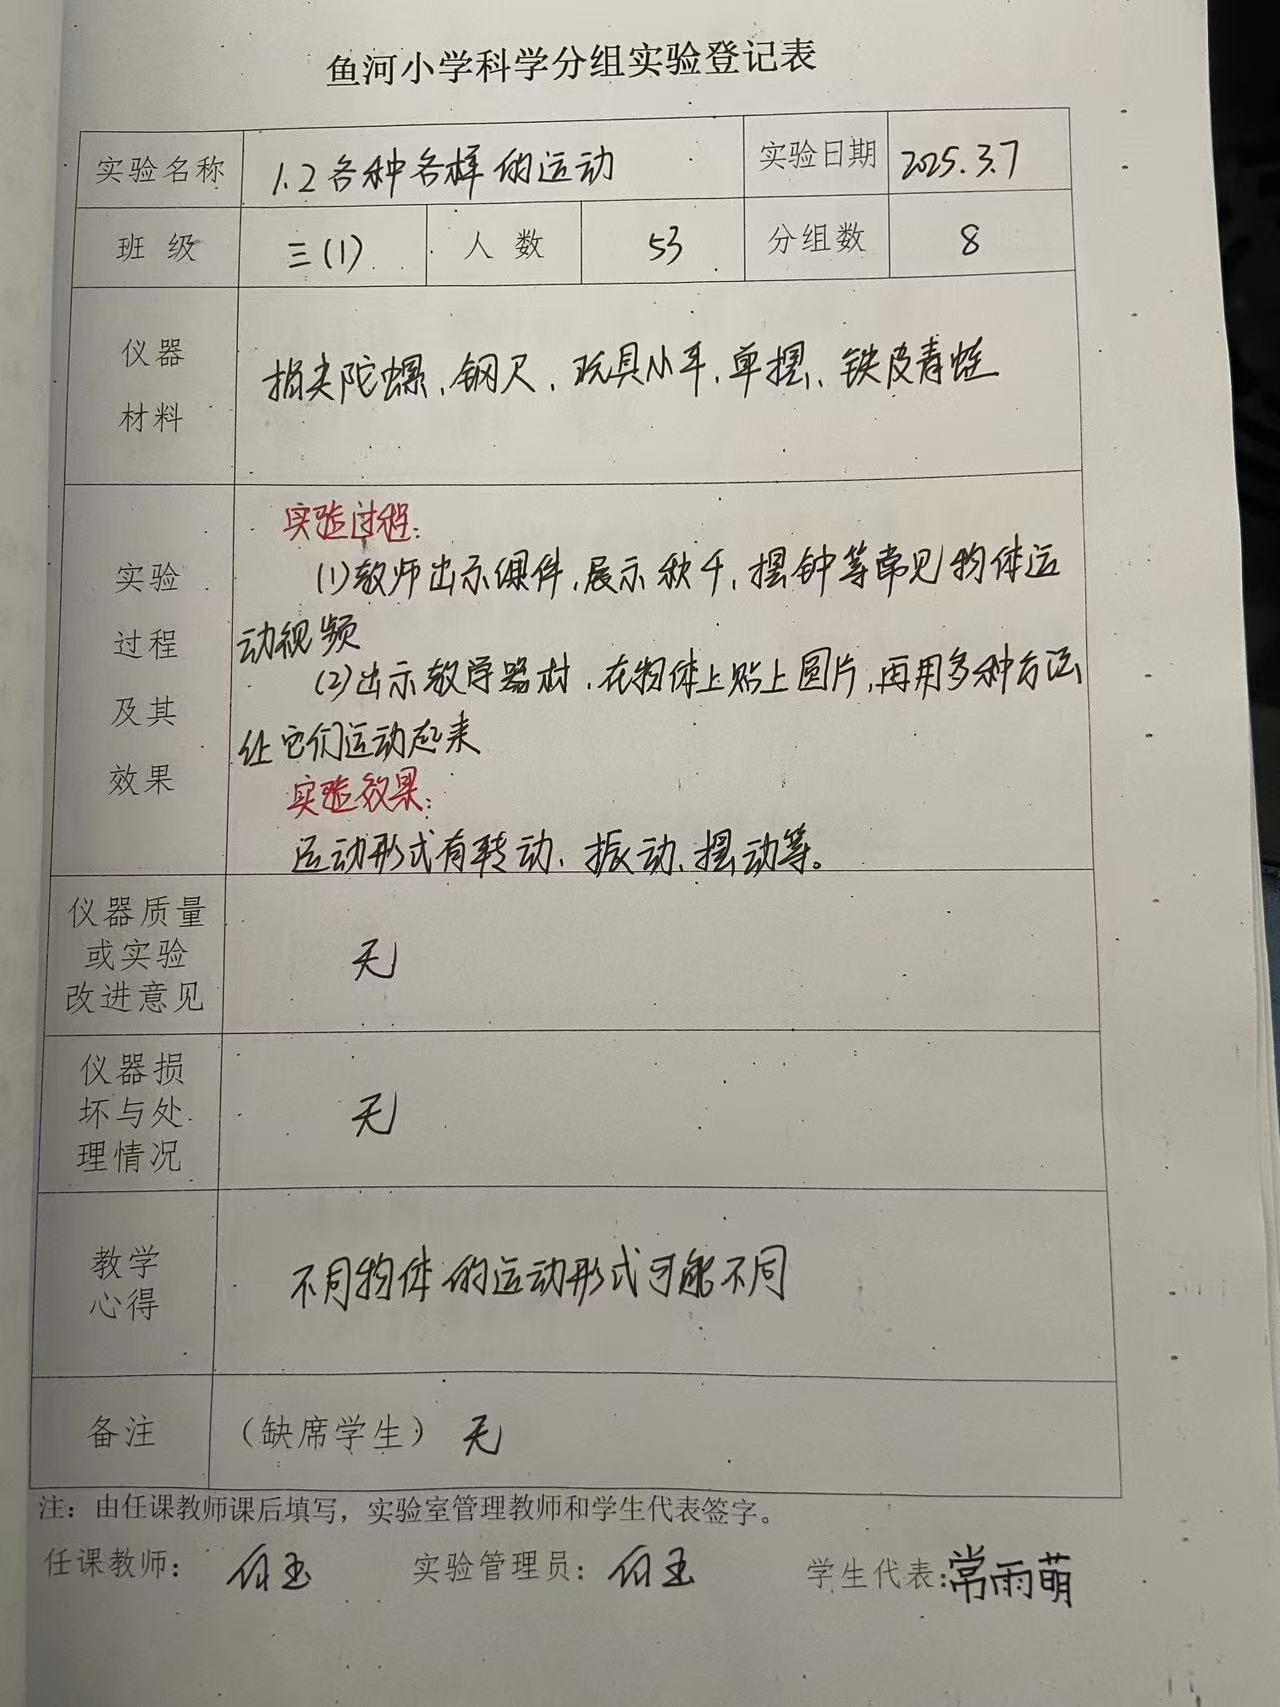 鱼河小学科学分组实验登记表
实验名称 1.2各种各样的运动 实验日期 2025.3.7
班级 三(1) 人数 53 分组数 8
仪器
材料
指尖陀螺、钢尺、玩具小车、单摆、铁皮青蛙
实验
过程
及其
效果
实验过程:
(1)教师出示课件,展示秋千,摆钟等常见物体运
动视频
(2)出示教学器材,在物体上贴上圆片,再用多种方法
让它们运动起来
实验效果:
运动形式有转动、振动、摆动等。
仪器质量
或实验
改进意见
无
仪器损
坏与处
理情况
无
教学
心得
不同物体的运动形式可能不同
备注 (缺席学生) 无
注:由任课教师课后填写,实验室管理教师和学生代表签字。
任课教师: 实验管理员: 学生代表:常雨萌